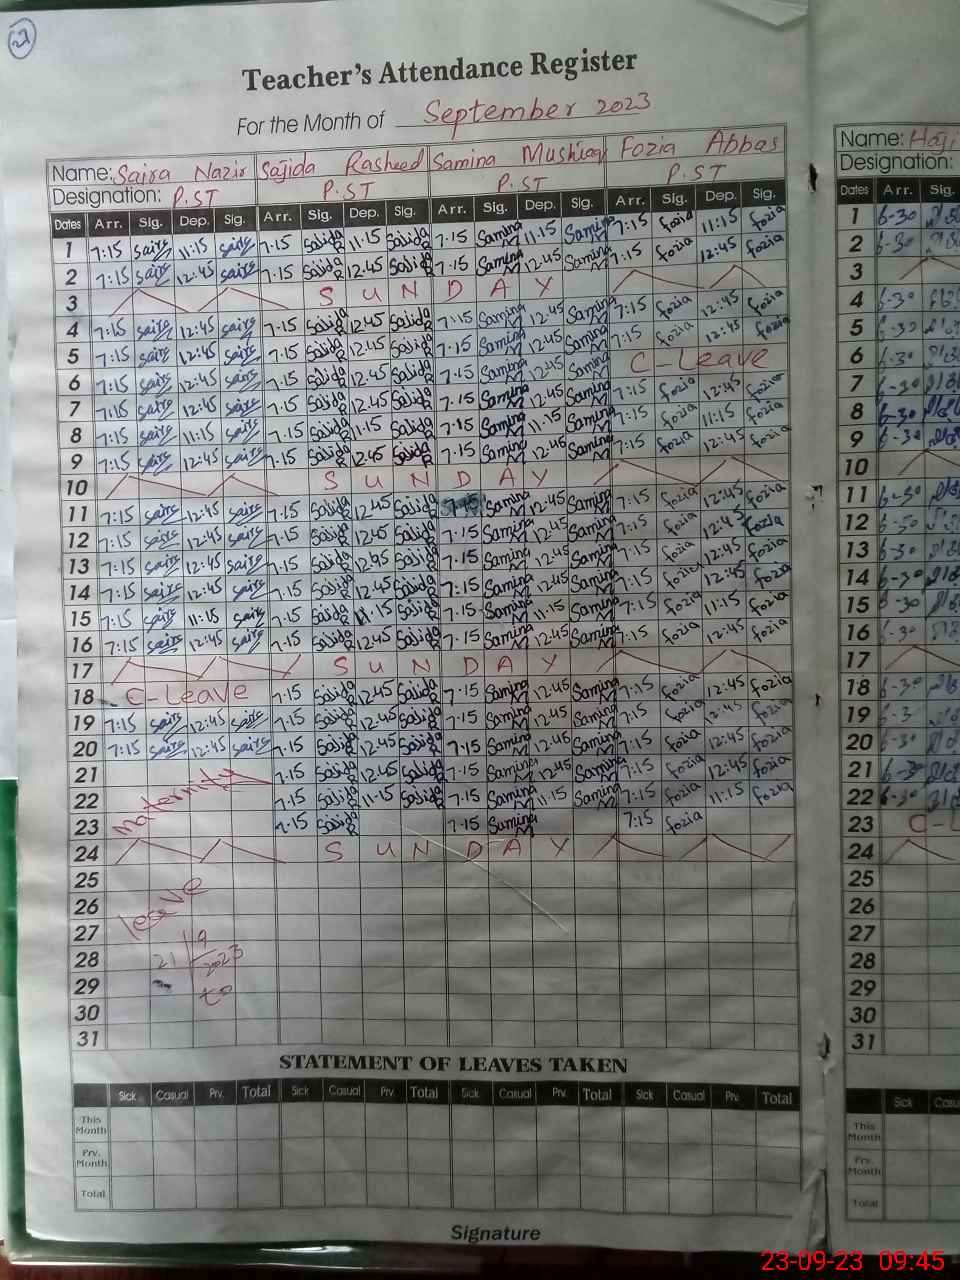 27
Teacher's Attendance Register
For the Month of September 2023
Name: Saira Nazir Sajida Rasheed Samina Mushtaq Fozia Abbas
Designation: P.ST P.ST P.ST P.ST
Dates Arr. Sig. Dep. Sig. Arr. Sig. Dep. Sig. Arr. Sig. Dep. Sig. Arr. Sig. Dep. Sig.
1 7:15 Saira 11:15 Saira 7.15 Sajida R 11.15 Sajida R 7.15 Samina M 11:15 Samina 7:15 fozia 11:15 fozia
2 7:15 Saira 12:45 Saira 7.15 Sajida R 12.45 Sajida R 7.15 Samina M 12:45 Samina M 7:15 fozia 12:45 fozia
3 S U N D A Y
4 7:15 Saira 12:45 Saira 7.15 Sajida R 12.45 Sajida R 7:15 Samina M 12.45 Samina M 7:15 fozia 12:45 fozia
5 7:15 Saira 12:45 Saira 7.15 Sajida R 12.45 Sajida R 7.15 Samina M 12.45 Samina M 7:15 fozia 12:45 fozia
6 7:15 Saira 12:45 Saira 7.15 Sajida R 12.45 Sajida R 7.15 Samina M 12.45 Samina M C-Leave
7 7:15 Saira 12:45 Saira 7.15 Sajida R 12.45 Sajida R 7.15 Samina M 12.45 Samina M 7:15 fozia 12:45 fozia
8 7:15 Saira 11:15 Saira 7.15 Sajida R 11.15 Sajida R 7.15 Samina M 11.15 Samina M 7:15 fozia 11:15 fozia
9 7:15 Saira 12:45 Saira 7.15 Sajida R 12.45 Sajida R 7.15 Samina M 12.45 Samina M 7:15 fozia 12:45 fozia
10 S U N D A Y
11 7:15 Saira 12:45 Saira 7.15 Sajida R 12.45 Sajida R Samina M 12:45 Samina M 7:15 fozia 12:45 fozia
12 7:15 Saira 12:45 Saira 7.15 Sajida R 12.45 Sajida R 7.15 Samina M 12.45 Samina M 7:15 fozia 12:45 fozia
13 7:15 Saira 12:45 Saira 7.15 Sajida R 12.95 Sajida R 7.15 Samina M 12.45 Samina M 7:15 fozia 12:45 fozia
14 7:15 Saira 12:45 Saira 7.15 Sajida R 12.45 Sajida R 7.15 Samina M 12.45 Samina M 7:15 fozia 12:45 fozia
15 7:15 Saira 11:15 Saira 7.15 Sajida R 11.15 Sajida R 7.15 Samina M 11:15 Samina M 7:15 fozia 11:15 fozia
16 7:15 Saira 12:45 Saira 7.15 Sajida R 12.45 Sajida R 7.15 Samina M 12.45 Samina M 7:15 fozia 12:45 fozia
17 S U N D A Y
18 C-Leave 7.15 Sajida R 12.45 Sajida R 7.15 Samina M 12.45 Samina M 7:15 fozia 12:45 fozia
19 7:15 Saira 12:45 Saira 7.15 Sajida R 12.45 Sajida R 7.15 Samina M 12.45 Samina M 7:15 fozia 12:45 fozia
20 7:15 Saira 12:45 Saira 7.15 Sajida R 12.45 Sajida R 7.15 Samina M 12.45 Samina M 7:15 fozia 12:45 fozia
21 7.15 Sajida R 12.45 Sajida R 7.15 Samina M 12.45 Samina M 7:15 fozia 12:45 fozia
22 maternity 7.15 Sajida R 11.15 Sajida R 7.15 Samina M 11.15 Samina M 7:15 fozia 11:15 fozia
23 7.15 Sajida R 7.15 Samina M 7:15 fozia
24 S U N D A Y
25
26 leave
27
28 21/9/2023
29 to
30
31
STATEMENT OF LEAVES TAKEN
Sick Casual Prv. Total Sick Casual Prv. Total Sick Casual Prv. Total Sick Casual Prv. Total
This Month
Prv. Month
Total
Signature
Name: Haji
Designation:
Dates Arr. Sig.
1 6-30
2 6-30
3
4 6-30
5 6-30
6 6-30
7 6-30
8 6-30
9 6-30
10
11 6-30
12 6-30
13 6-30
14 6-30
15 6-30
16 6-30
17
18 6-30
19 6-3
20 6-30
21 6-30
22 6-30
23 C-L
24
25
26
27
28
29
30
31
Sick Casu
This Month
Prv. Month
Total
23-09-23 09:45